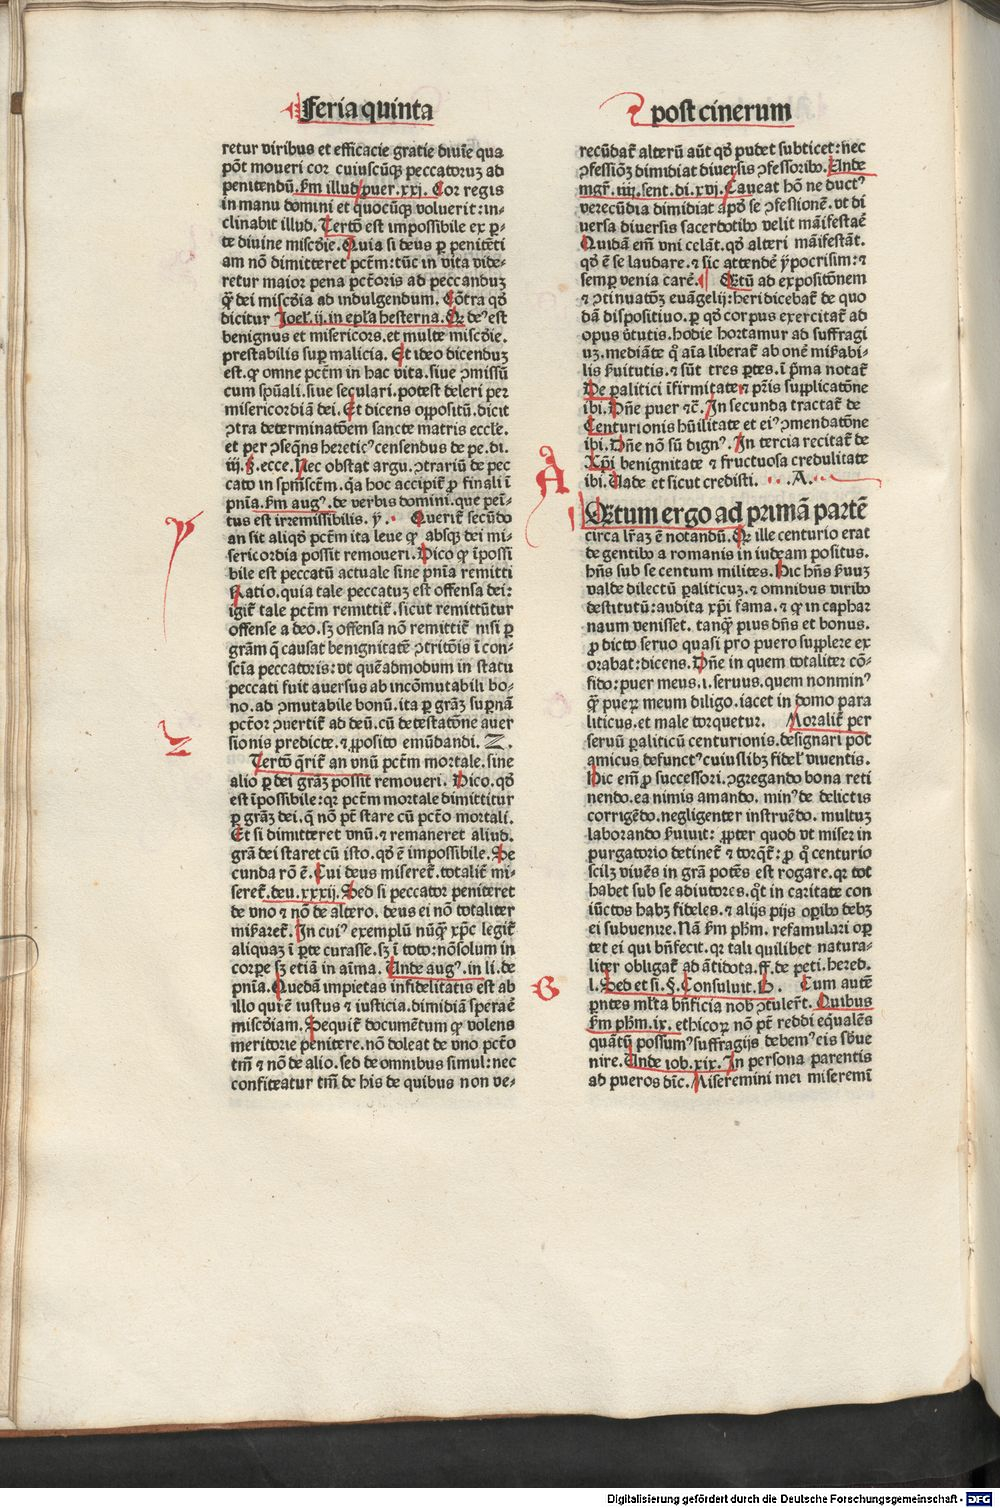 Feria quinta
post cinerum
retur viribus et efficacie gratie diuīe qua
pōt moueri cor cuiuscūqꝫ peccatoruꝫ ad
penitendū. ẜm illud puer. xxj. Cor regis
in manu domini et quocūqꝫ voluerit: in-
clinabit illud. Tertō est impossibile ex ꝑ-
te diuine miscd̄ie. Quia si deus ꝑ penitēti
am nō dimitteret pctm̄: tūc in vita vide-
retur maior pena pctōris ad peccanduꝫ
q̄ꝫ dei miscd̄ia ad indulgendum. Cōtra qd̄
dicitur Joel. ij. in epl̄a hesterna. Qꝛ deꝰ est
benignus et misericors. et multe miscd̄ie.
prestabilis suꝑ malicia. Et ideo dicenduꝫ
est. ꝙ omne pctm̄ in hac vita. siue ↄmissū
cum spūali. siue seculari. potest deleri per
misericordiā dei. Et dicens oppositū. dicit
ↄtra determinatōem sancte matris eccle.
et per ↄseqn̄s hereticꝰ censendus de pe. di.
iij. §. ecce. Nec obstat argu. ↄtrariū de pec
cato in spm̄sctm̄. qꝛ hoc accipit᷑ ꝓ finali ī
pn̄ia. ẜm augꝰ. de verbis domini. que peni-
tus est irremissibilis. y. Querit᷑ secūdo
an sit aliqd̄ pctm̄ ita leue ꝙ absqꝫ dei mi-
sericordia possit remoueri. Dico ꝙ īpossi
bile est peccatū actuale sine pn̄ia remitti
Ratio. quia tale peccatuꝫ est offensa dei:
igit᷑ tale pctm̄ remittit᷑. sicut remittūtur
offense a deo. sꝫ offensa nō remittit᷑ nisi ꝑ
gr̄am q̄ causat benignitatē ↄtritōis ī con-
sctīa peccatoris: vt quēadmodum in statu
peccati fuit auersus ab incōmutabili bo-
no. ad ↄmutabile bonū. ita ꝑ gr̄aꝫ suꝑnā
pctōr ↄuertit᷑ ad deū. cū detestatōne auer
sionis predicte. ⁊ ꝓposito emūdandi. Z.
Tertō q̄rit᷑ an vnū pctm̄ mortale. sine
alio ꝑ dei gr̄aꝫ possit remoueri. Dico. qd̄
est īpossibile: qꝛ pctm̄ mortale dimittitur
ꝑ gr̄aꝫ dei. q̄ nō pt̄ stare cū pctō mortali.
Et si dimitteret vnū. ⁊ remaneret aliud.
gr̄a dei staret cū isto. qd̄ ē impossibile. Se
cunda rō ē. Cui deus miseret᷑. totalit᷑ mi-
seret᷑. deu. xxxij. Sed si peccator peniteret
de vno ⁊ nō de altero. deus ei nō totaliter
miẜaret᷑. In cuiꝰ exemplū nūqꝫ xp̄c legit᷑
aliquaꝫ ī ꝑte curasse. sꝫ ī toto: nōsolum in
corpe sꝫ etiā in aīma. Unde augꝰ. in li. de
pn̄ia. Quedā impietas infidelitatis est ab
illo qui ē iustus ⁊ iusticia. dimidiā sperae
miscd̄iam. Sequit᷑ documētum ꝙ volens
meritorie penitere. nō doleat de vno pctō
tm̄ ⁊ nō de alio. sed de omnibus simul: nec
confiteatur tm̄ de his de quibus non ve-
recūdat᷑ alterū aūt qd̄ pudet subticet: nec
ↄfessiōꝫ dimidiat diuersis ↄfessoribꝰ. Unde
mgr̄. iiij. sent. di. xvj. Caueat hō ne ductꝰ
verecūdia dimidiat apd̄ se ↄfesionē. vt di
uersa diuersis sacerdotibꝰ velit māifestaē
Quidā em̄ vni celāt. qd̄ alteri māifestāt.
qd̄ ē se laudare. ⁊ sic attendē ypocrisim: ⁊
semꝑ venia carē. Qꝫtū ad expositōnem
⁊ ↄtinuatōꝫ euāgelij: heri dicebat᷑ de quo
dā dispositiuo. ꝑ qd̄ corpus exercitat᷑ ad
opus v̄tutis. hodie hortamur ad suffragi
uꝫ. mediāte q̄ aīa liberat᷑ ab om̄ē miẜabi-
lis ẜuitutis. ⁊ sūt tres ꝑtes. ī p̄ma notat᷑
De ꝑalitici īfirmitate ⁊ pr̄is supplicatōne
ibi. Dn̄e puer ⁊c̄. In secunda tractat᷑ de
Centurionis hūilitate et eiꝰ ↄmendatōne
ibi. Dn̄e nō sū dignꝰ. In tercia recitat᷑ de
Xp̄i benignitate ⁊ fructuosa credulitate
ibi. Uade et sicut credisti. A.
QUātum ergo ad primā partē
circa lr̄aꝫ ē notandū. Qꝛ ille centurio erat
de gentibꝰ a romanis in iudeam positus.
hn̄s sub se centum milites. Hic hn̄s ẜuuꝫ
valde dilectū ꝑaliticuꝫ. ⁊ omnibus viribꝰ
destitutū: audita xp̄i fama. ⁊ ꝙ in caphar
naum venisset. tanqꝫ pius dn̄s et bonus.
ꝓ dicto seruo quasi pro puero supplere ex
orabat: dicens. Dn̄e in quem totaliter cō-
fido: puer meus. i. seruus. quem nonminꝰ
q̄ꝫ pueꝝ meum diligo. iacet in domo para
liticus. et male torquetur. Moralit᷑ per
seruū ꝑaliticū centurionis. designari pōt
amicus defunctꝰ cuiuslibꝫ fidel᷑ viuentis.
Hic em̄ ꝓ successori. ↄgregando bona reti
nendo. ea nimis amando. minꝰ de delictis
corrigēdo. negligenter instruēdo. multuꝫ
laborando ẜuiuit: ꝓpter quod vt miser in
purgatorio detinet᷑ ⁊ torq̄t᷑: ꝓ q̄ centurio
scilꝫ viuēs in gr̄a potēs est rogare. qꝛ tot
habet sub se adiutores. q̄t in caritate con
iūctos habꝫ fideles. ⁊ alijs pijs opibꝰ debꝫ
ei subuenire. Nā ẜm ph̄m. refamulari oꝑ
tet ei qui bn̄fecit. qꝛ tali quilibet natura-
liter obligat᷑ ad ātidota. ff. de peti. hered.
l. Sed et si. §. Consuluit. B. Cum autē
ꝑntes ml̄ta bn̄ficia nob̄ ↄtuler̄t. Quibus
ẜm ph̄m. ix. ethicoꝝ nō pt̄ reddi eq̄ualēs
quātū possumꝰ suffragijs debemꝰ eis sb̄ue
nire. Unde iob. xix. In persona parentis
ad pueros dic̄. Miseremini mei miseremī